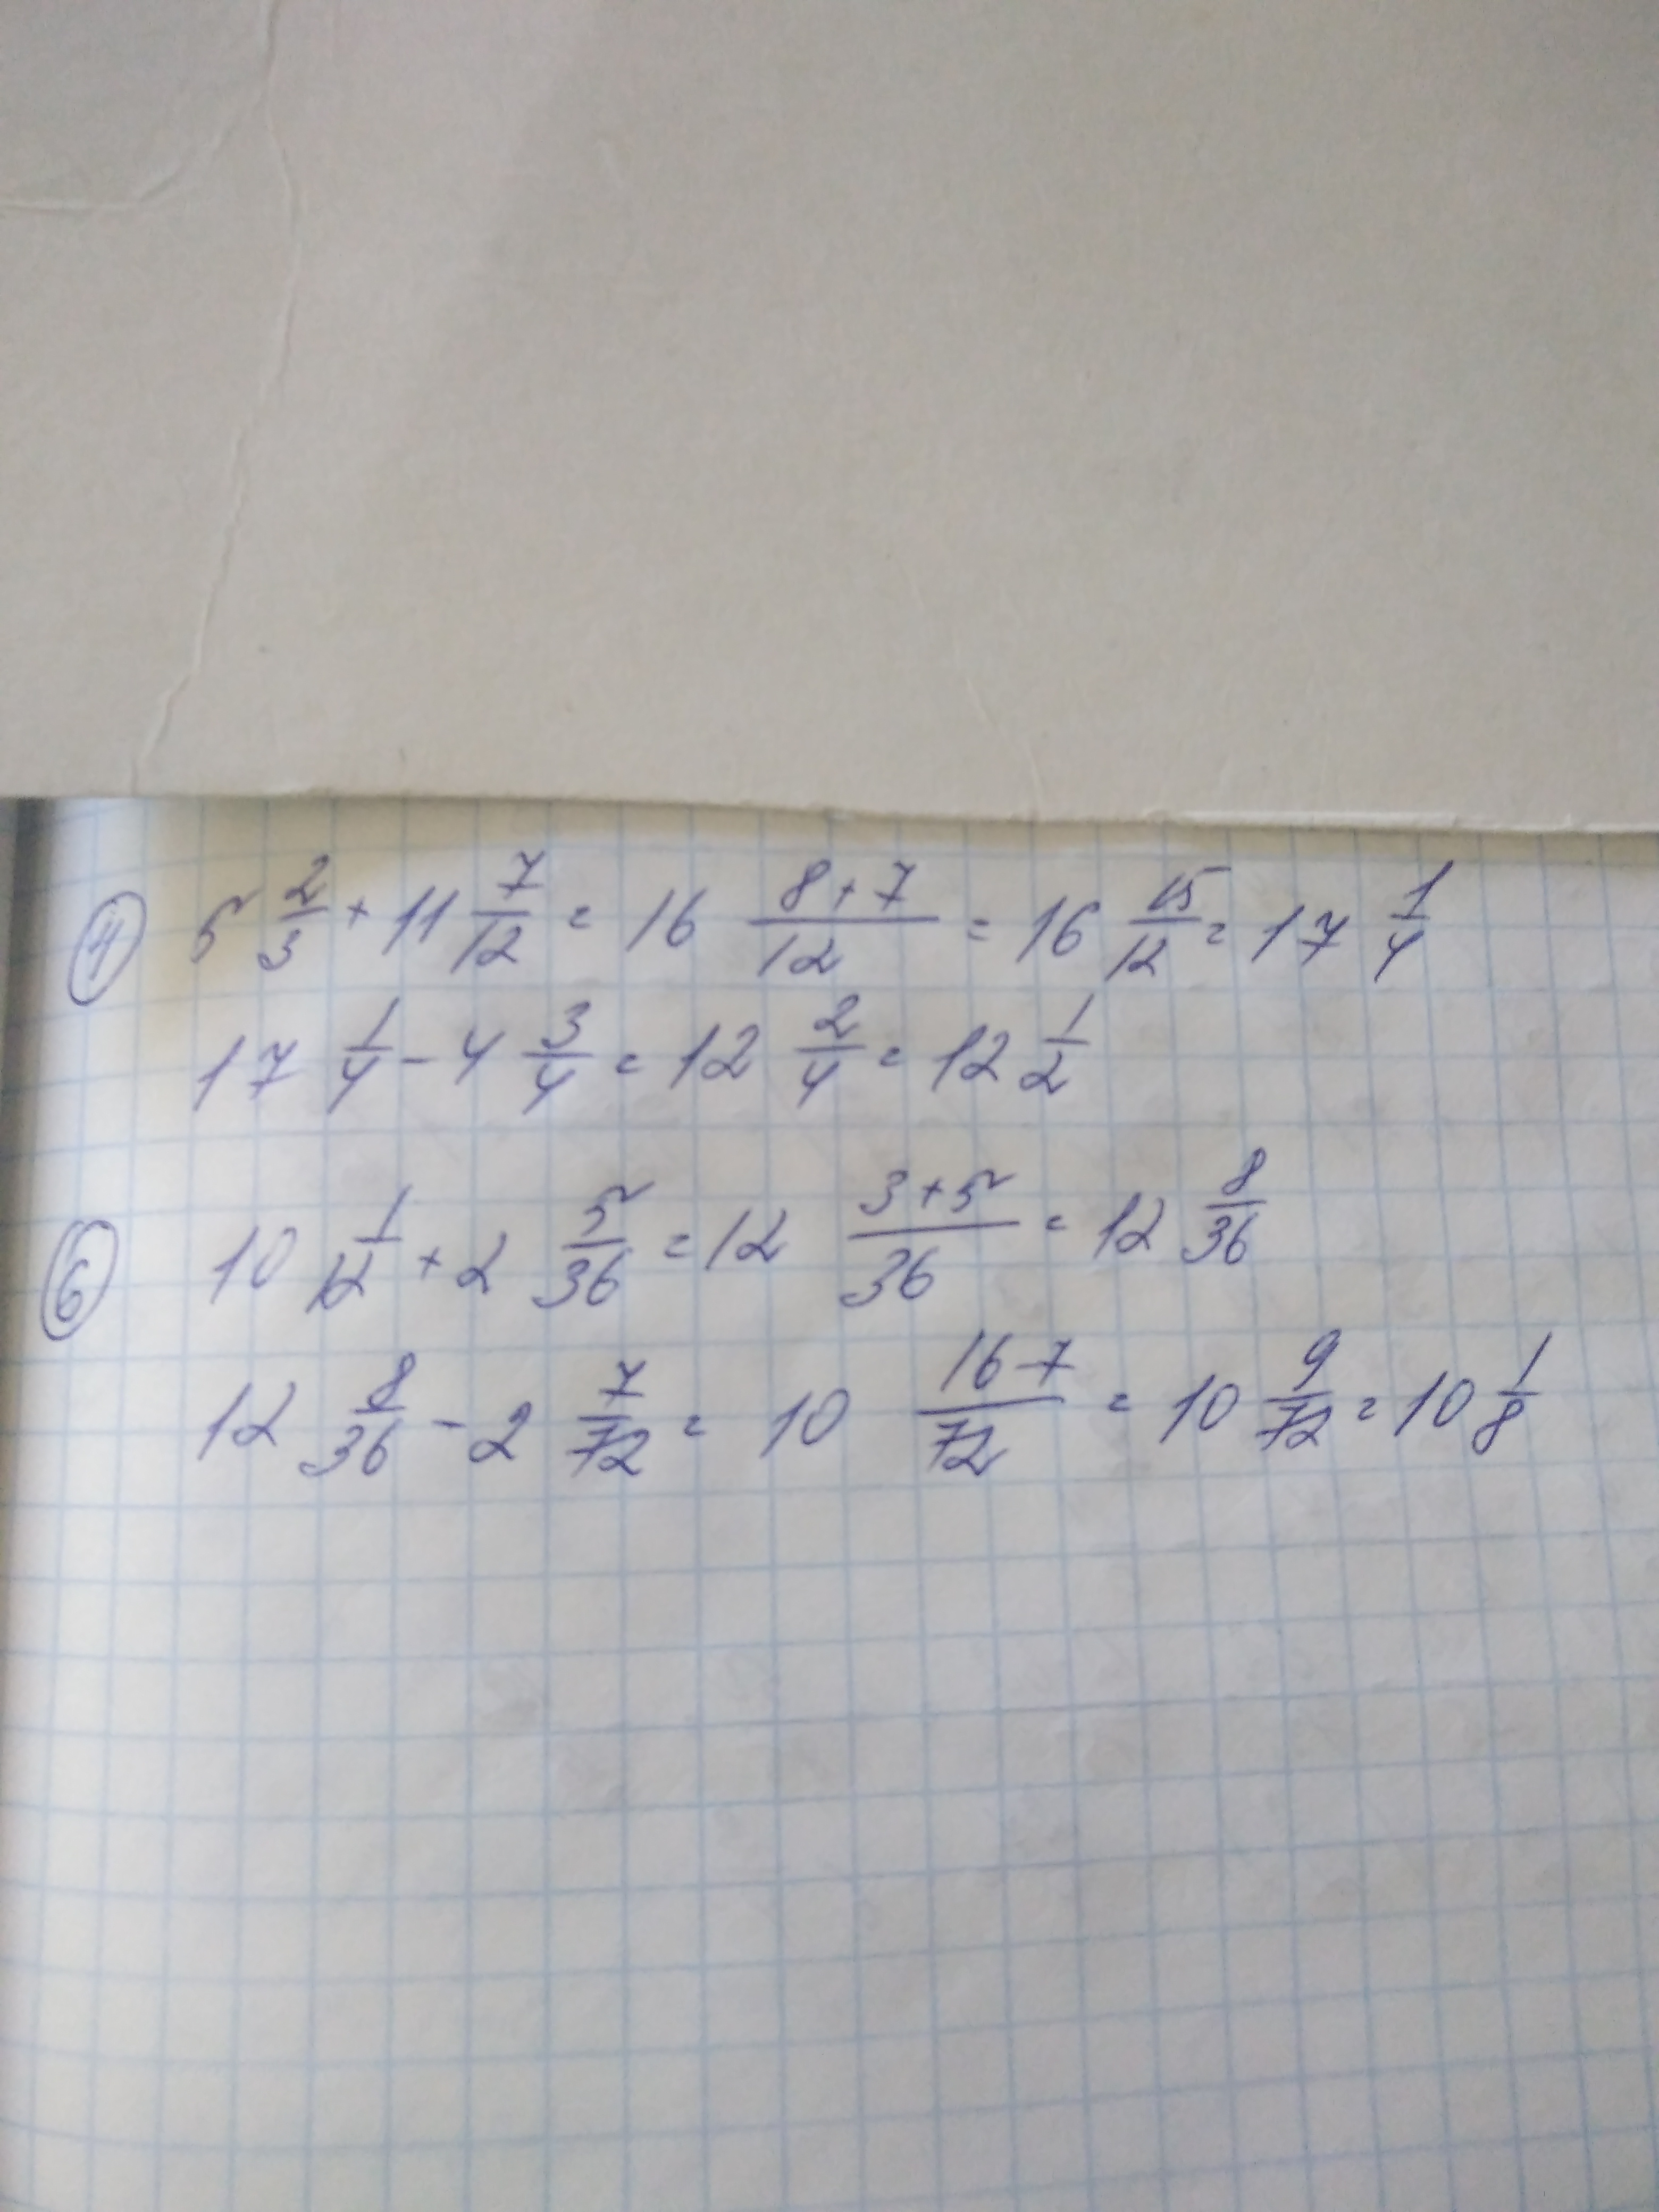 ④ 5 2/3 + 11 7/12 = 16 (8+7)/12 = 16 15/12 = 17 1/4
17 1/4 - 4 3/4 = 12 2/4 = 12 1/2
⑥ 10 1/12 + 2 5/36 = 12 (3+5)/36 = 12 8/36
12 8/36 - 2 7/72 = 10 (16-7)/72 = 10 9/72 = 10 1/8